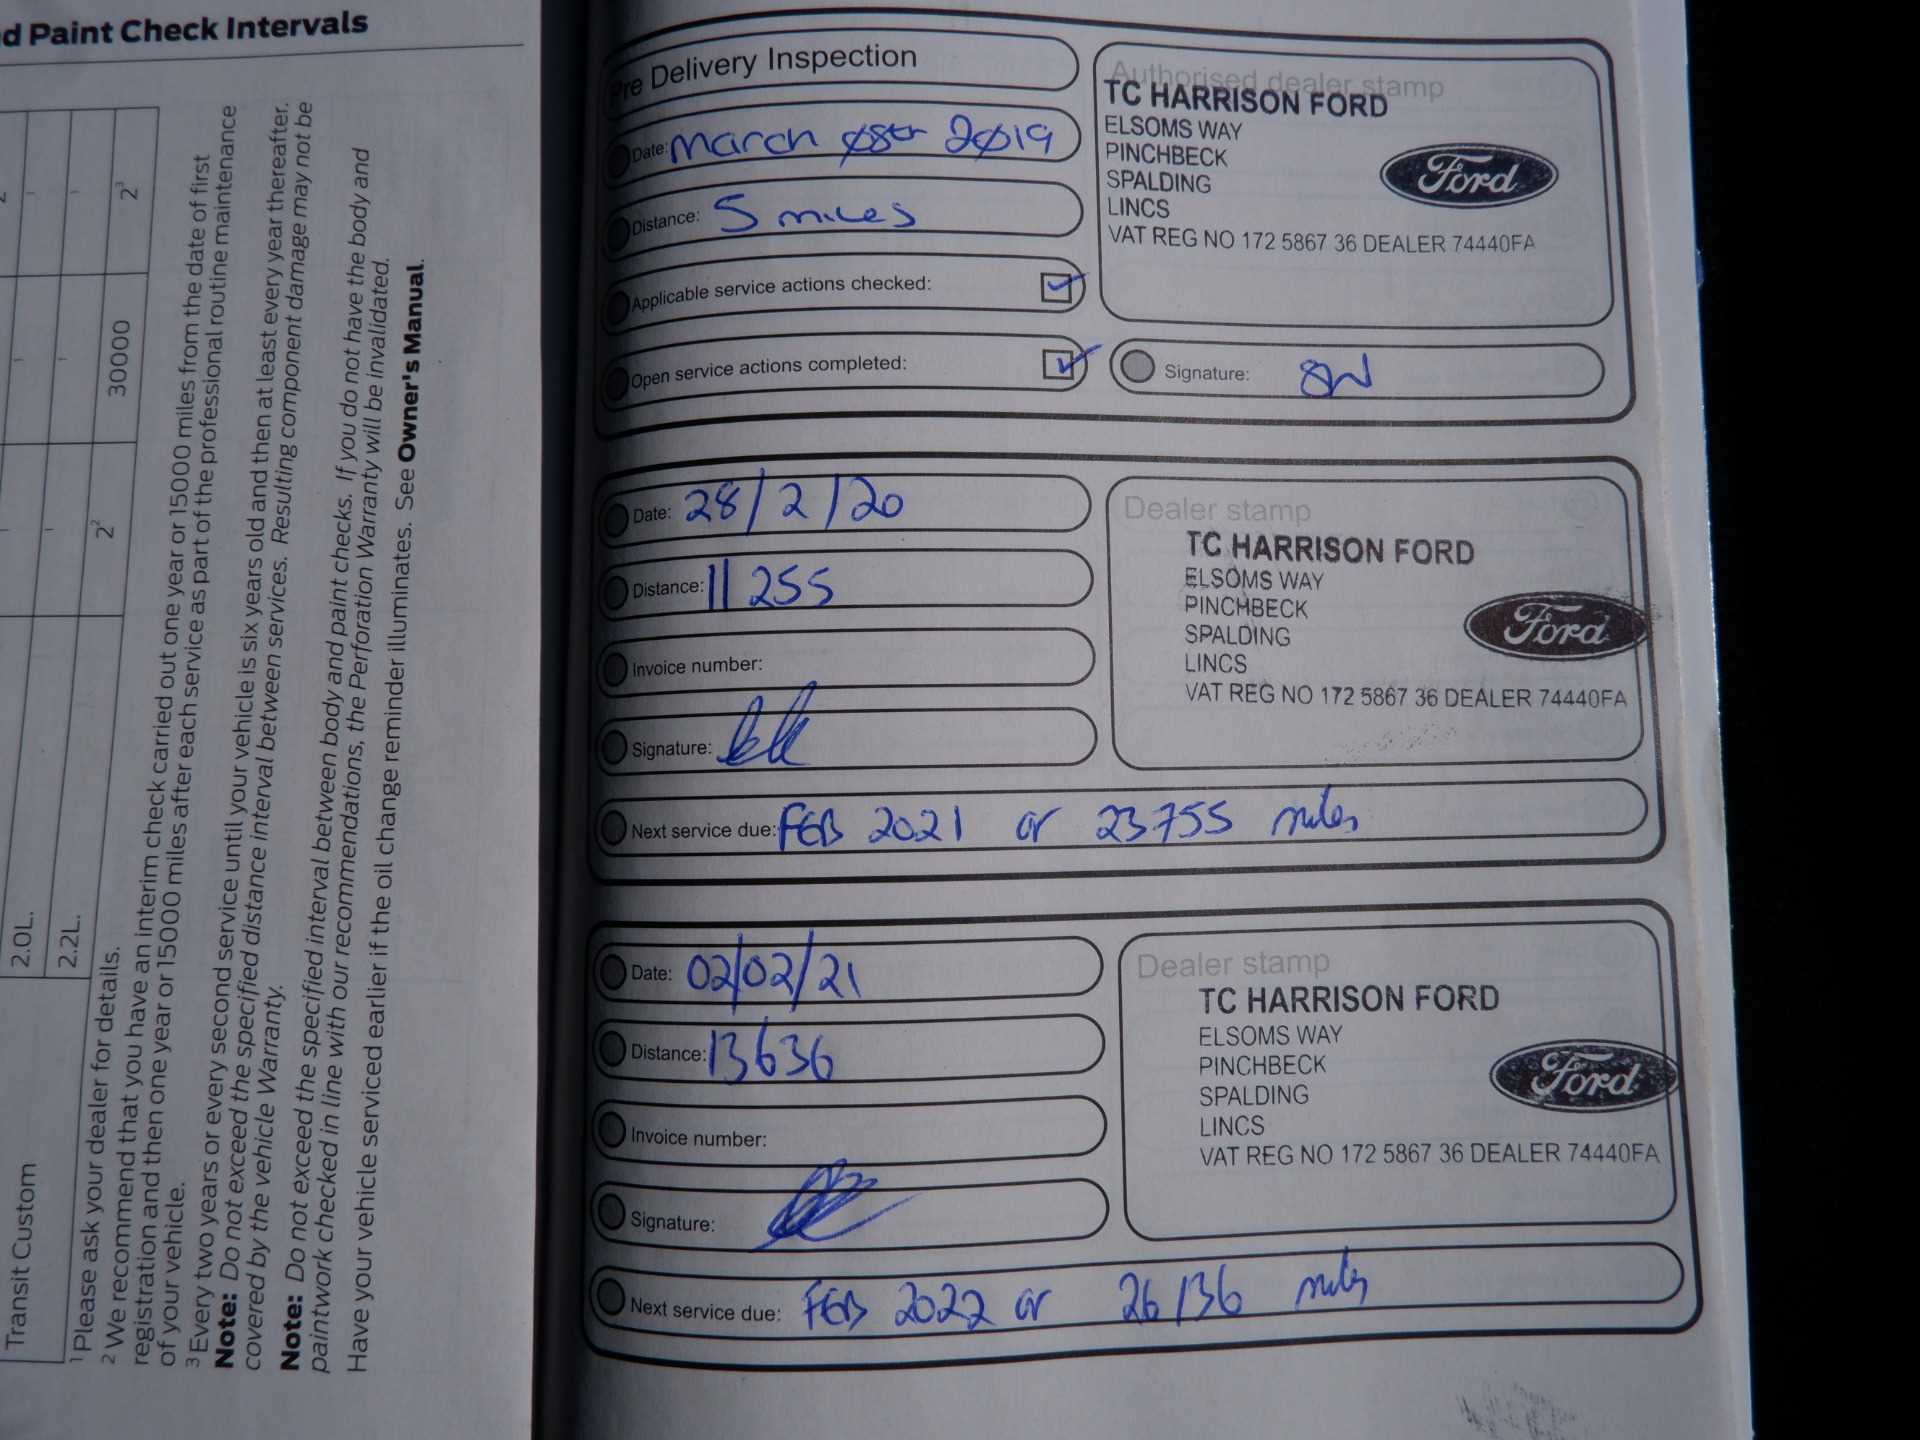 d Paint Check Intervals
2 2³
30000
2²
2.0L.
2.2L.
Transit Custom
¹ Please ask your dealer for details.
² We recommend that you have an interim check carried out one year or 15000 miles from the date of first
registration and then one year or 15000 miles after each service as part of the professional routine maintenance
of your vehicle.
³ Every two years or every second service until your vehicle is six years old and then at least every year thereafter.
Note: Do not exceed the specified distance interval between services. Resulting component damage may not be
covered by the vehicle Warranty.
Note: Do not exceed the specified interval between body and paint checks. If you do not have the body and
paintwork checked in line with our recommendations, the Perforation Warranty will be invalidated.
Have your vehicle serviced earlier if the oil change reminder illuminates. See Owner's Manual.
Pre Delivery Inspection
Date: March 08th 2019
Distance: 5 miles
Applicable service actions checked:
Open service actions completed:
Authorised dealer stamp
TC HARRISON FORD
ELSOMS WAY
PINCHBECK
SPALDING
LINCS
VAT REG NO 172 5867 36 DEALER 74440FA
Ford
Signature:
Date: 28/2/20
Distance: 11 255
Invoice number:
Signature:
Next service due: FEB 2021 or 23755 miles
Dealer stamp
TC HARRISON FORD
ELSOMS WAY
PINCHBECK
SPALDING
LINCS
VAT REG NO 172 5867 36 DEALER 74440FA
Ford
Date: 02/02/21
Distance: 13636
Invoice number:
Signature:
Next service due: FEB 2022 or 26136 miles
Dealer stamp
TC HARRISON FORD
ELSOMS WAY
PINCHBECK
SPALDING
LINCS
VAT REG NO 172 5867 36 DEALER 74440FA
Ford